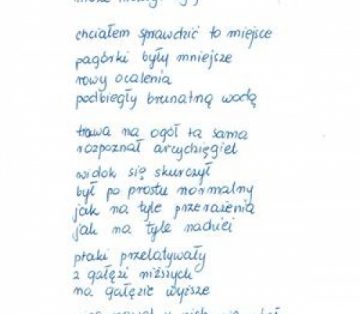 chciałem sprawdzić to miejsce
pagórki były mniejsze
rowy ocalenia
podbiegły brunatną wodą
trawa na ogół ta sama
rozpoznał arcychięgiel
widok się skurczył
był po prostu normalny
jak na tyle przerażenia
jak na tyle nadziei
ptaki przelatywały
z gałęzi niższych
na gałęzie wyższe